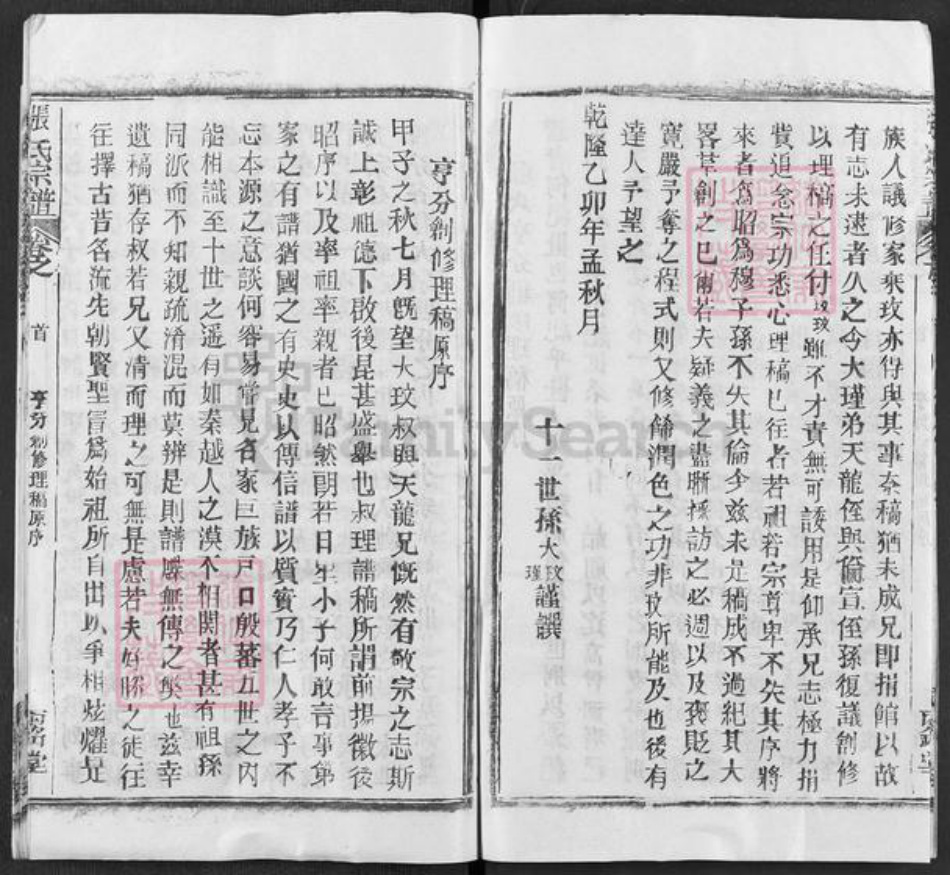 族人議修家乘玫亦得與其事奈稿猶未成兄即捐館以故
有志未逮者久之今大瑾弟天龍侄與倫宣侄孫復議創修
以理稿之任付玫玫雖不才責無可諉用是仰承兄志極力捐
貲追念宗功悉心理稿已往者若祖若宗尊卑不失其序將
來者為昭為穆子孫不失其倫今茲未是稿成不過紀其大
畧草創之已爾若夫疑義之盡晰採訪之必週以及褒貶之
寬嚴予奪之程式則又修餙潤色之功非玫所能及也後有
達人予望之
乾隆乙卯年孟秋月
十一世孫大玫瑾謹譔
亨分創修理稿原序
甲子之秋七月既望大玫叔與天龍兄慨然有敬宗之志斯
誠上彰祖德下啟後昆甚盛舉也叔理譜稿所謂前揚徽後
昭序以及率祖率親者已昭然朗若日星小子何敢言事第
家之有譜猶國之有史史以傳信譜以質實乃仁人孝子不
忘本源之意談何容易嘗見各家巨族戸口殷蕃五世之內
能相識至十世之遥有如秦越人之漠不相関者甚有祖孫
同派而不知親疏淆混而莫辨是則譜牒無傳之獘也茲幸
遺稿猶存叔若兄又清而理之可無是慮若夫好勝之徒往
往擇古昔名流先朝賢聖冒為始祖所自出以爭相炫燿是
張氏宗譜
卷之
首
亨分創修理稿原序
堂
FamilySearch